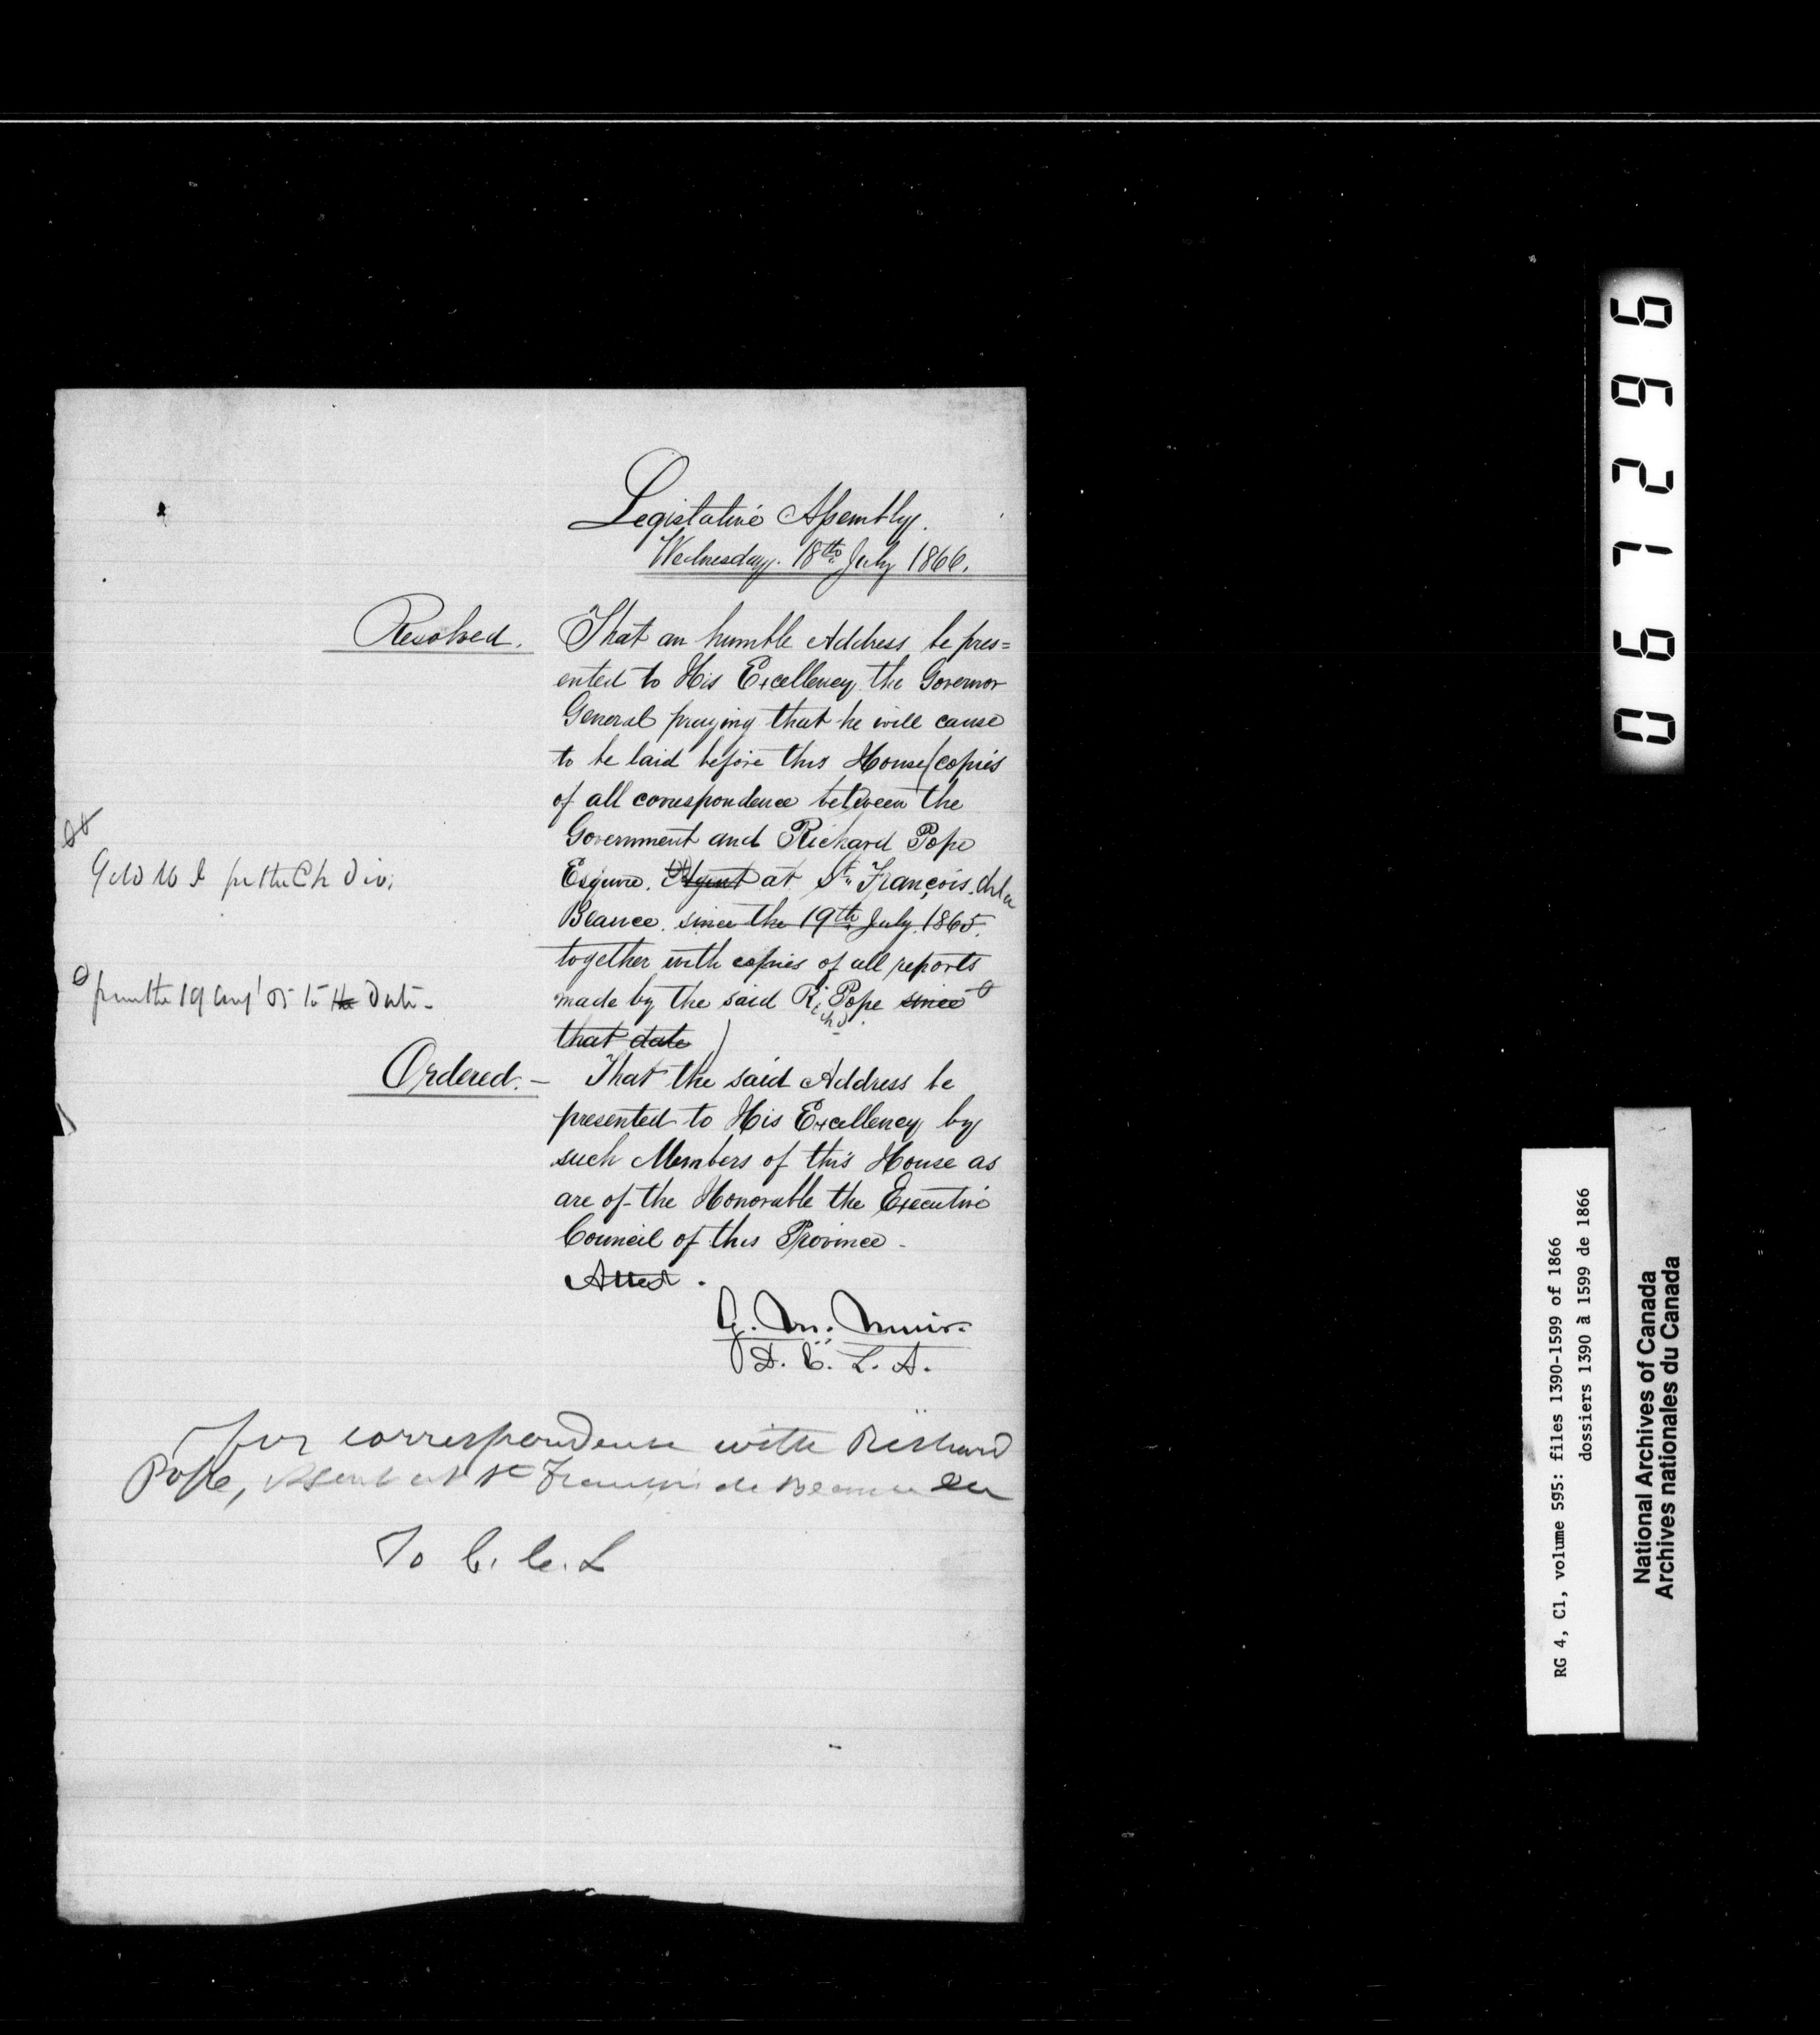 Legislative Assembly.
Wednesday. 18th July 1866.
Resolved. That an humble Address be pres=
ented to His Excellency the Governor
General praying that he will cause
to be laid before this House (copies
of all correspondence between the
Government and Richard Pope
Esquire. Agent at St. François. de la
Beauce. since the 19th July. 1865.
together with copies of all reports
made by the said Richd. Pope since
that date)
from the 19 to the date -
Ordered. - That the said Address be
presented to His Excellency by
such Members of this House as
are of the Honorable the Executive
Council of this Province -
Attest.
G. M. Muir.
D. C. L. A.
For correspondence with Richard
Pope, Agent at St François de Beauce
To C. C. L
067296
RG 4, C1, volume 595: files 1390-1599 of 1866
dossiers 1390 à 1599 de 1866
National Archives of Canada
Archives nationales du Canada